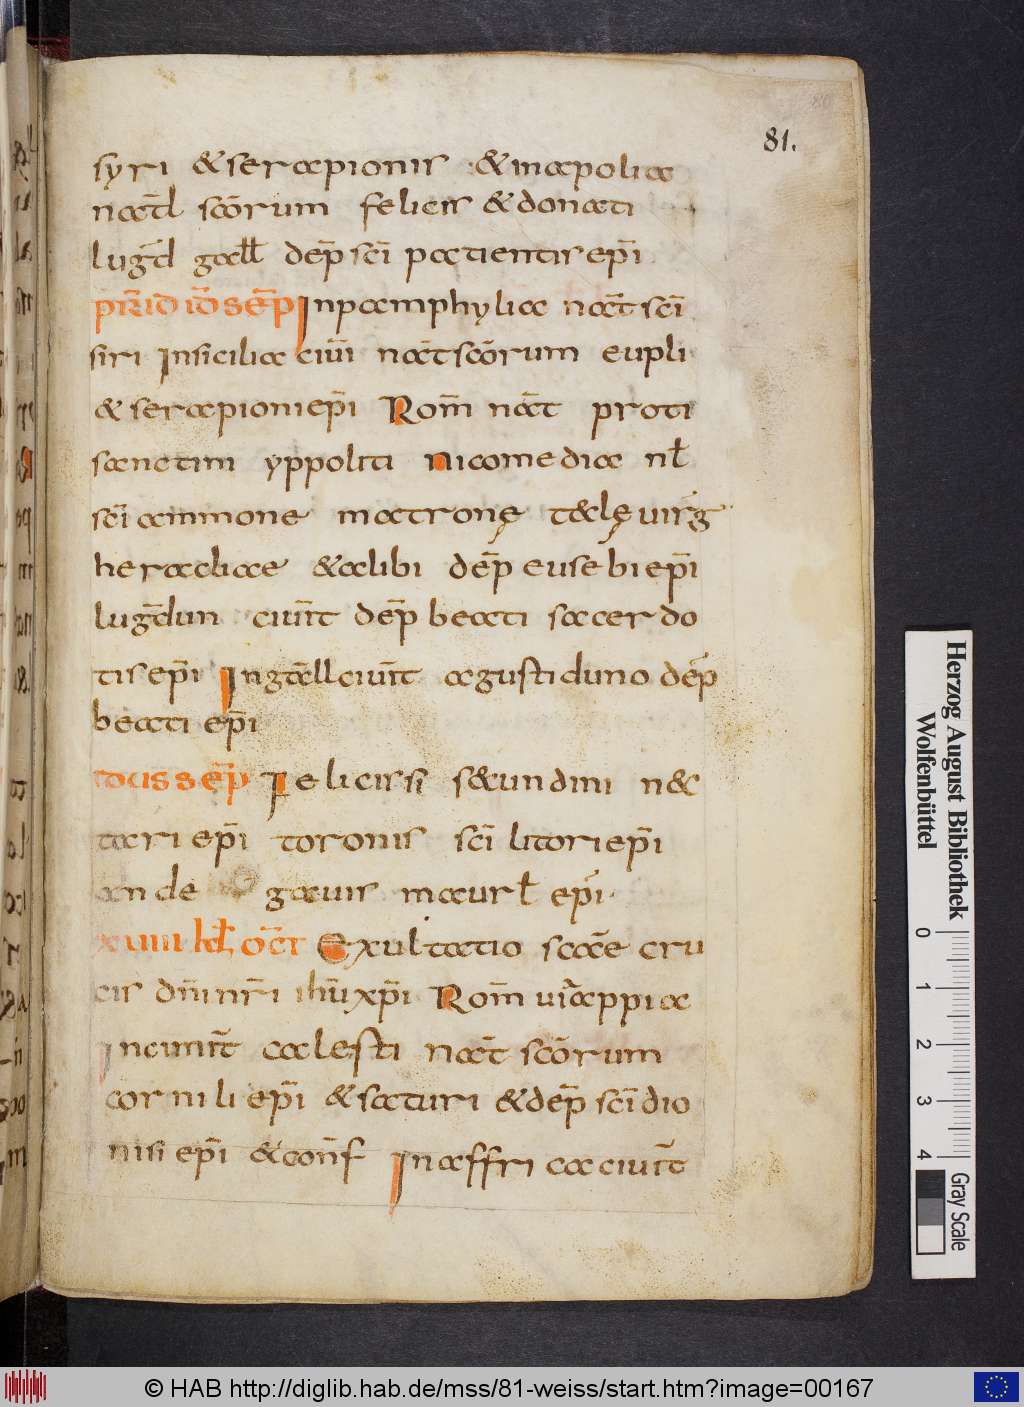 81.
syri & serapionis & inapolia
nat̄l scōrum felicis & donati
lugd̄ gall̄ dep̄ scī patientis ep̄i
prid̄ id̄ sep̄ In pamphylia nat̄ scī
siri In sicilia ciūi nat̄ scōrum eupli
& serapioni ep̄i Rom̄ nat̄ proti
sanctini yppoliti nicomedia nl̄
scī ammone matronę t&clę uirḡ
heracliae & alibi dep̄ eusebi ep̄i
lugd̄un ciuit̄ dep̄ beati sacerdo
tis ep̄i In gall̄ ciuit̄ agustiduno dep̄
beati ep̄i
idus sep̄ Felicissi s&undini n&c
tari ep̄i toronis scī litori ep̄i
ande gauis maurl̄ ep̄i
xuiii kl̄ oct̄ Exultatio scāe cru
cis dn̄i nr̄i ih̄u xp̄i Rom̄ uia appia
In cimit̄ calesti nat̄ scōrum
cornili ep̄i & saturi & dep̄ scī dio
nisi ep̄i & conf̄ In affrica ciuit̄
Herzog August Bibliothek
Wolfenbüttel
0 1 2 3 4
Gray Scale
© HAB http://diglib.hab.de/mss/81-weiss/start.htm?image=00167